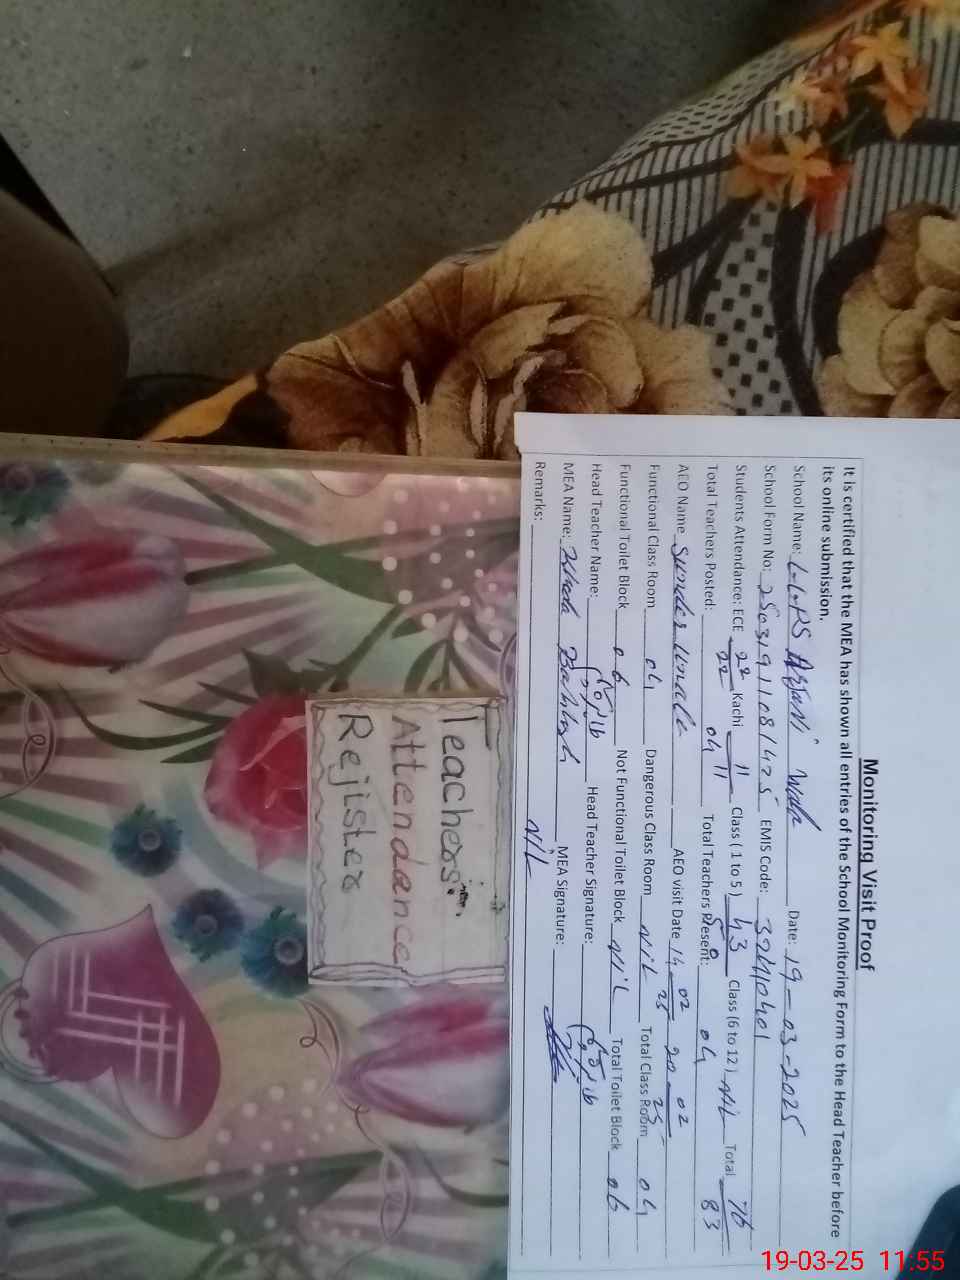 Monitoring Visit Proof
It is certified that the MEA has shown all entries of the School Monitoring Form to the Head Teacher before
its online submission.
School Name: Wala Date: 19-03-2025
School Form No: 25031911081425 EMIS Code: 32410401
Students Attendance: ECE 22/22 Kachi 11/11 Class ( 1 to 5 ) 43/50 Class (6 to 12) Nil Total 76/83
Total Teachers Posted: 04 Total Teachers Present: 04
AEO Name AEO visit Date 14-02-25 20-02-25
Functional Class Room 04 Dangerous Class Room Nil Total Class Room 04
Functional Toilet Block 06 Not Functional Toilet Block Nil Total Toilet Block 06
Head Teacher Name: Head Teacher Signature:
MEA Name: MEA Signature:
Remarks: Nil
Teachers
Attendance
Rejister
19-03-25 11:55